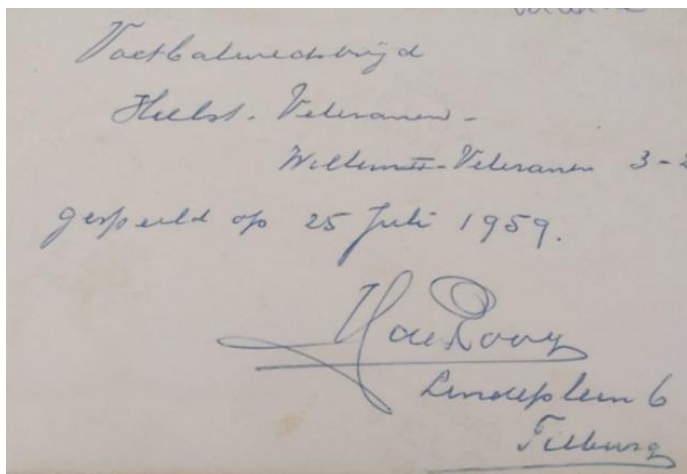 Voetbalwedstrijd
Hulst-Veteranen-
Willem II-Veteranen 3-2
gespeeld op 25 Juli 1959.
de Rooy
Lindeplein 6
Tilburg